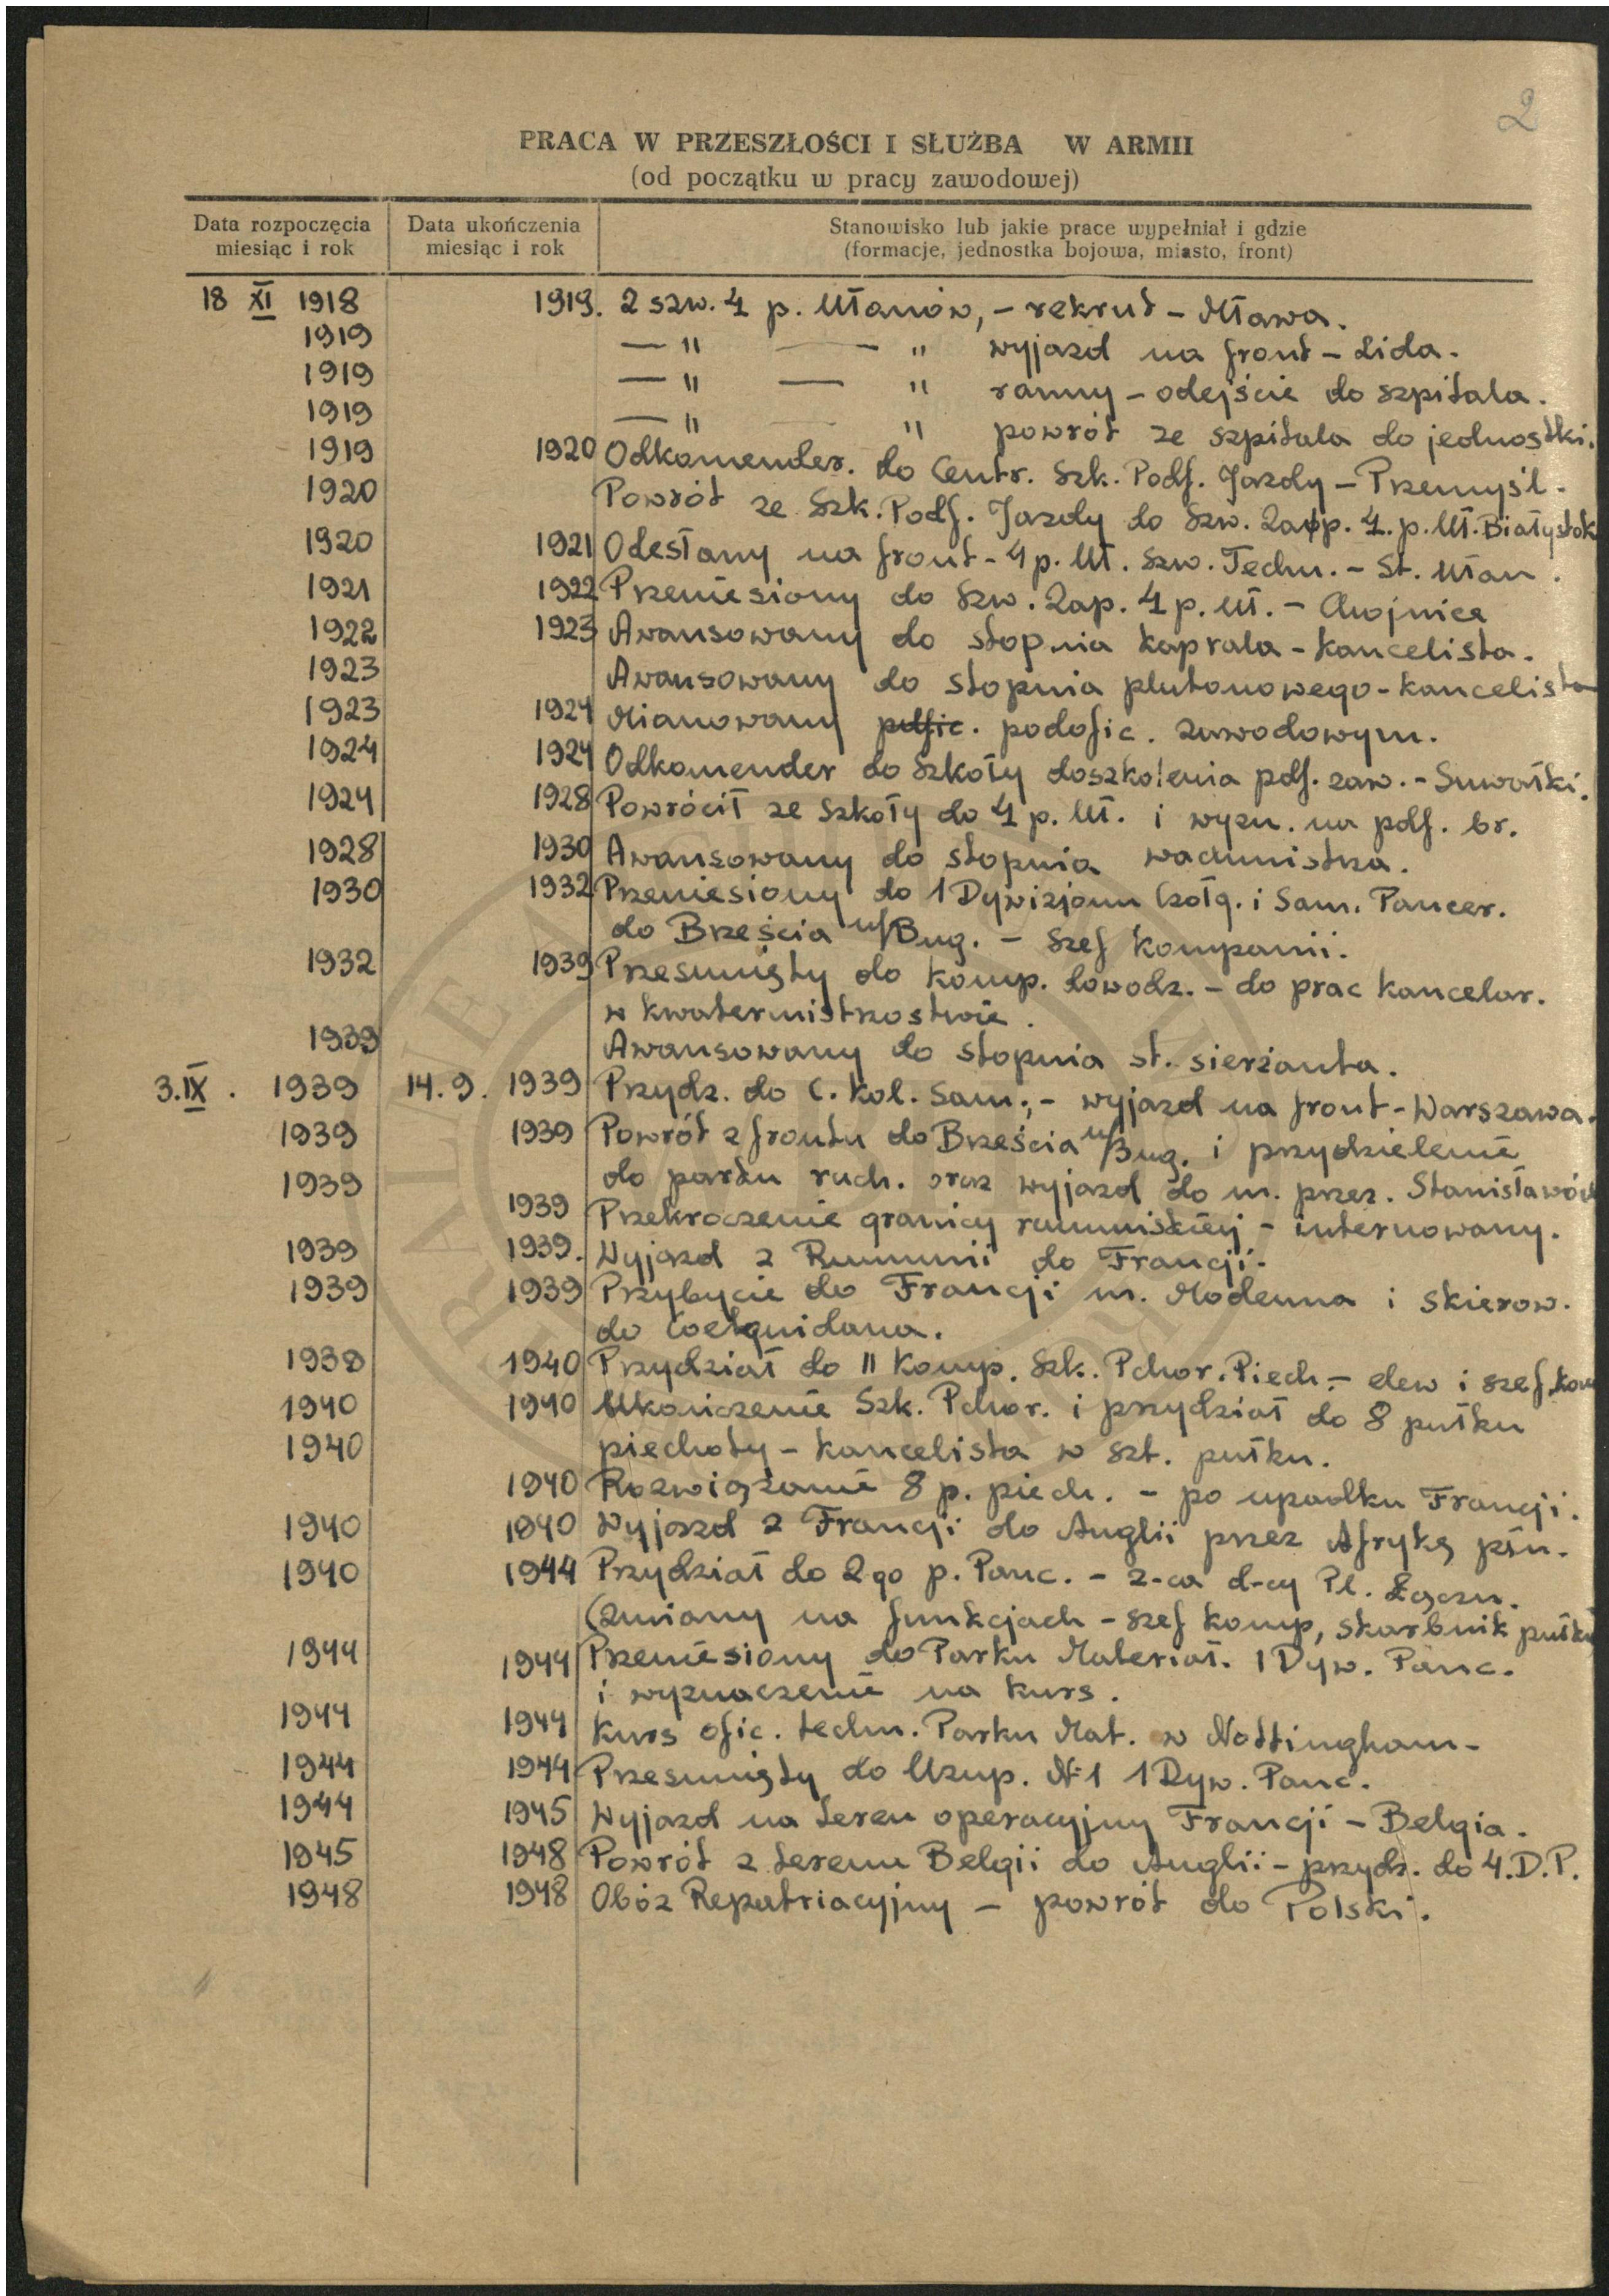 2
PRACA W PRZESZŁOŚCI I SŁUŻBA W ARMII
(od początku w pracy zawodowej)
Data rozpoczęcia miesiąc i rok
Data ukończenia miesiąc i rok
Stanowisko lub jakie prace wypełniał i gdzie
(formacje, jednostka bojowa, miasto, front)
18 XI 1918 1919. 2 szw. 4 p. Ułanów, - rekrut - Mława.
1919 — " — " wyjazd na front - Lida.
1919 — " — " ranny - odejście do szpitala.
1919 — " — " powrót ze szpitala do jednostki.
1919 1920 Odkomender. do Centr. Szk. Podf. Jazdy - Przemyśl.
1920 Powrót ze Szk. Podf. Jazdy do Szw. Zap. 4. p. Uł. Białystok
1920 1921 Odesłany na front - 4 p. Uł. Szw. Techn. - St. Ułan.
1921 1922 Przeniesiony do Szw. Zap. 4 p. Uł. - Chojnice
1922 1923 Awansowany do stopnia kaprala - kancelista.
1923 Awansowany do stopnia plutonowego - kancelista
1923 1924 Mianowany pdfic. podofic. zawodowym.
1924 1924 Odkomender do Szkoły doszkolenia pdf. zaw. - Suwałki.
1924 1928 Powrócił ze Szkoły do 4 p. Uł. i wyzn. na pdf. br.
1928 1930 Awansowany do stopnia wachmistrza.
1930 1932 Przeniesiony do 1 Dywizjonu Czołg. i Sam. Pancer.
do Brześcia n/Bug. - szef kompanii.
1932 1939 Przesunięty do komp. dowodz. - do prac kancelar.
w kwatermistrzostwie.
1939 Awansowany do stopnia st. sierżanta.
3.IX. 1939 14.9. 1939 Przydz. do C. Kol. Sam., - wyjazd na front - Warszawa.
1939 1939 Powrót z frontu do Brześcia n/Bug. i przydzielenie
1939 do parku ruch. oraz wyjazd do m. przez. Stanisławów
1939 Przekroczenie granicy rumuńskiej - internowany.
1939 1939. Wyjazd z Rumunii do Francji.
1939 1939 Przybycie do Francji m. Modenna i skierow.
do Coetquidana.
1939 1940 Przydział do II Komp. Szk. Pchor. Piech. - elew i szef kom
1940 1940 Ukończenie Szk. Pchor. i przydział do 8 pułku
1940 piechoty - kancelista w szt. pułku.
1940 Rozwiązanie 8 p. piech. - po upadku Francji.
1940 1940 Wyjazd z Francji do Anglii przez Afrykę płn.
1940 1944 Przydział do 2go p. Panc. - z-ca d-cy Pl. Łączn.
(zmiany na funkcjach - szef komp, skarbnik pułku
1944 1944 Przeniesiony do Parku Materiał. 1 Dyw. Panc.
i wyznaczenie na kurs.
1944 1944 Kurs ofic. techn. Parku Mat. w Nottingham -
1944 1944 Przesunięty do Uzup. № 1 1 Dyw. Panc.
1944 1945 Wyjazd na teren operacyjny Francji - Belgia.
1945 1948 Powrót z terenu Belgii do Anglii - przydz. do 4. D.P.
1948 1948 Obóz Repatriacyjny - powrót do Polski.